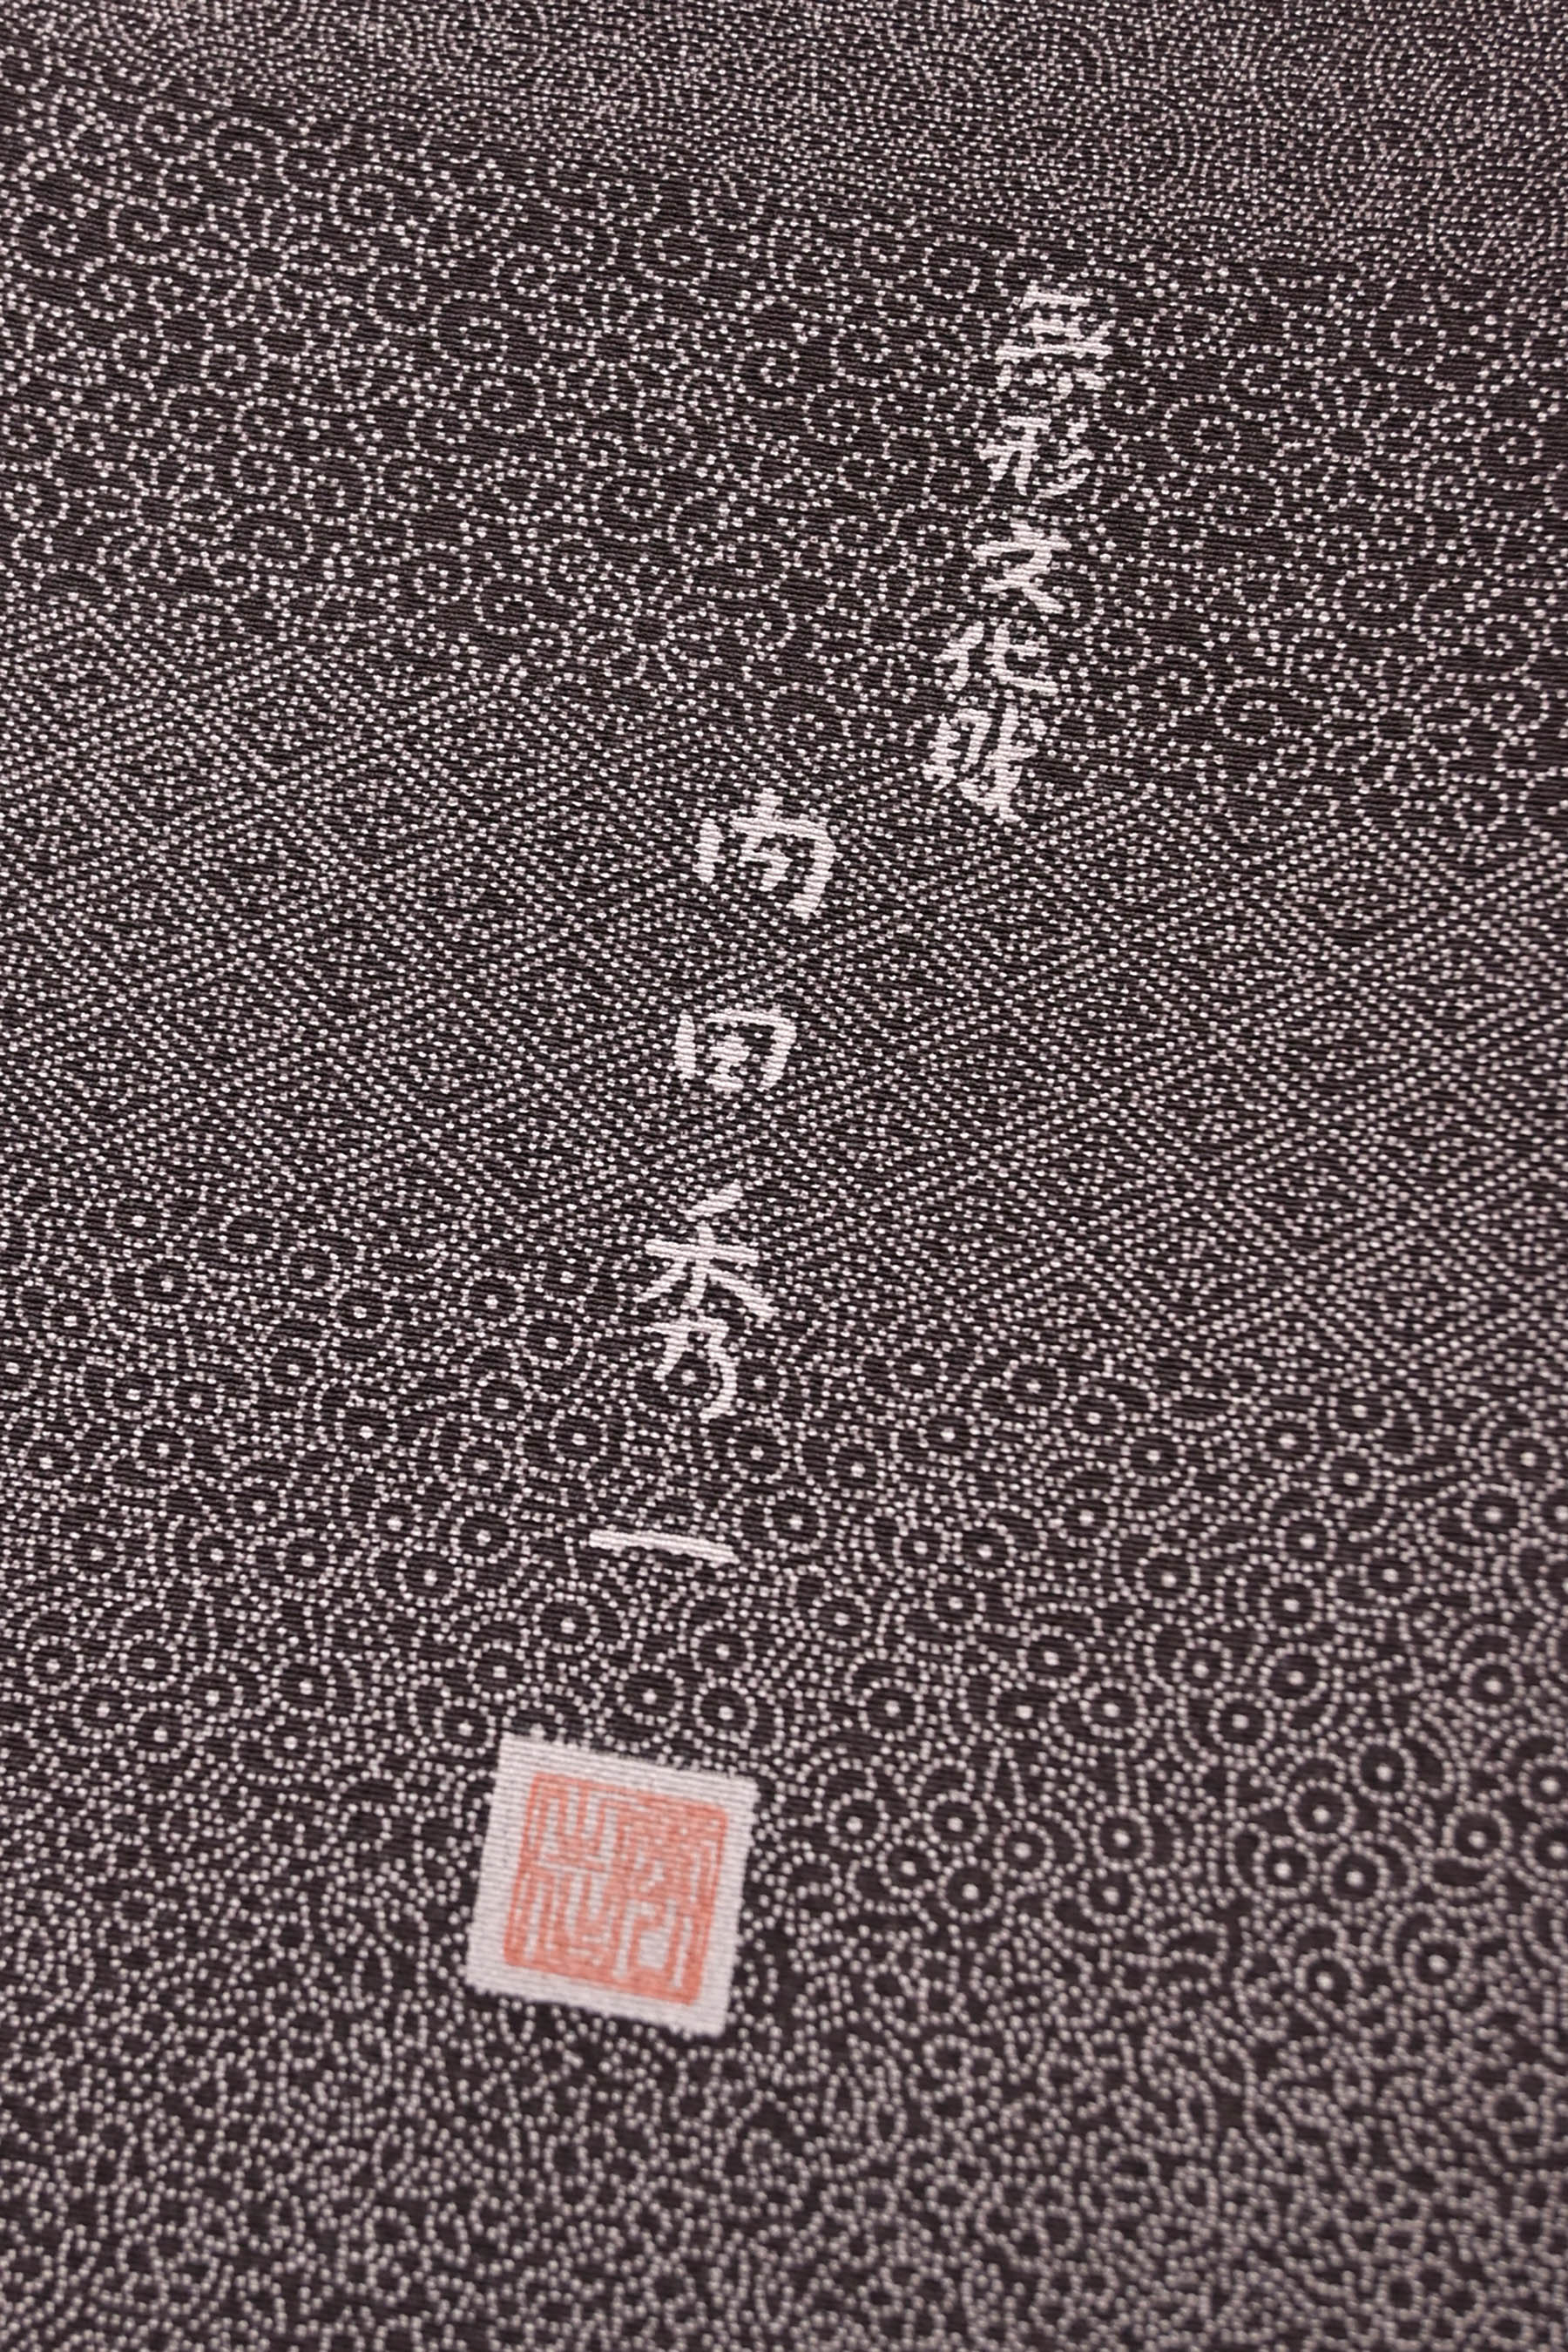 無形文化財
内田秀一